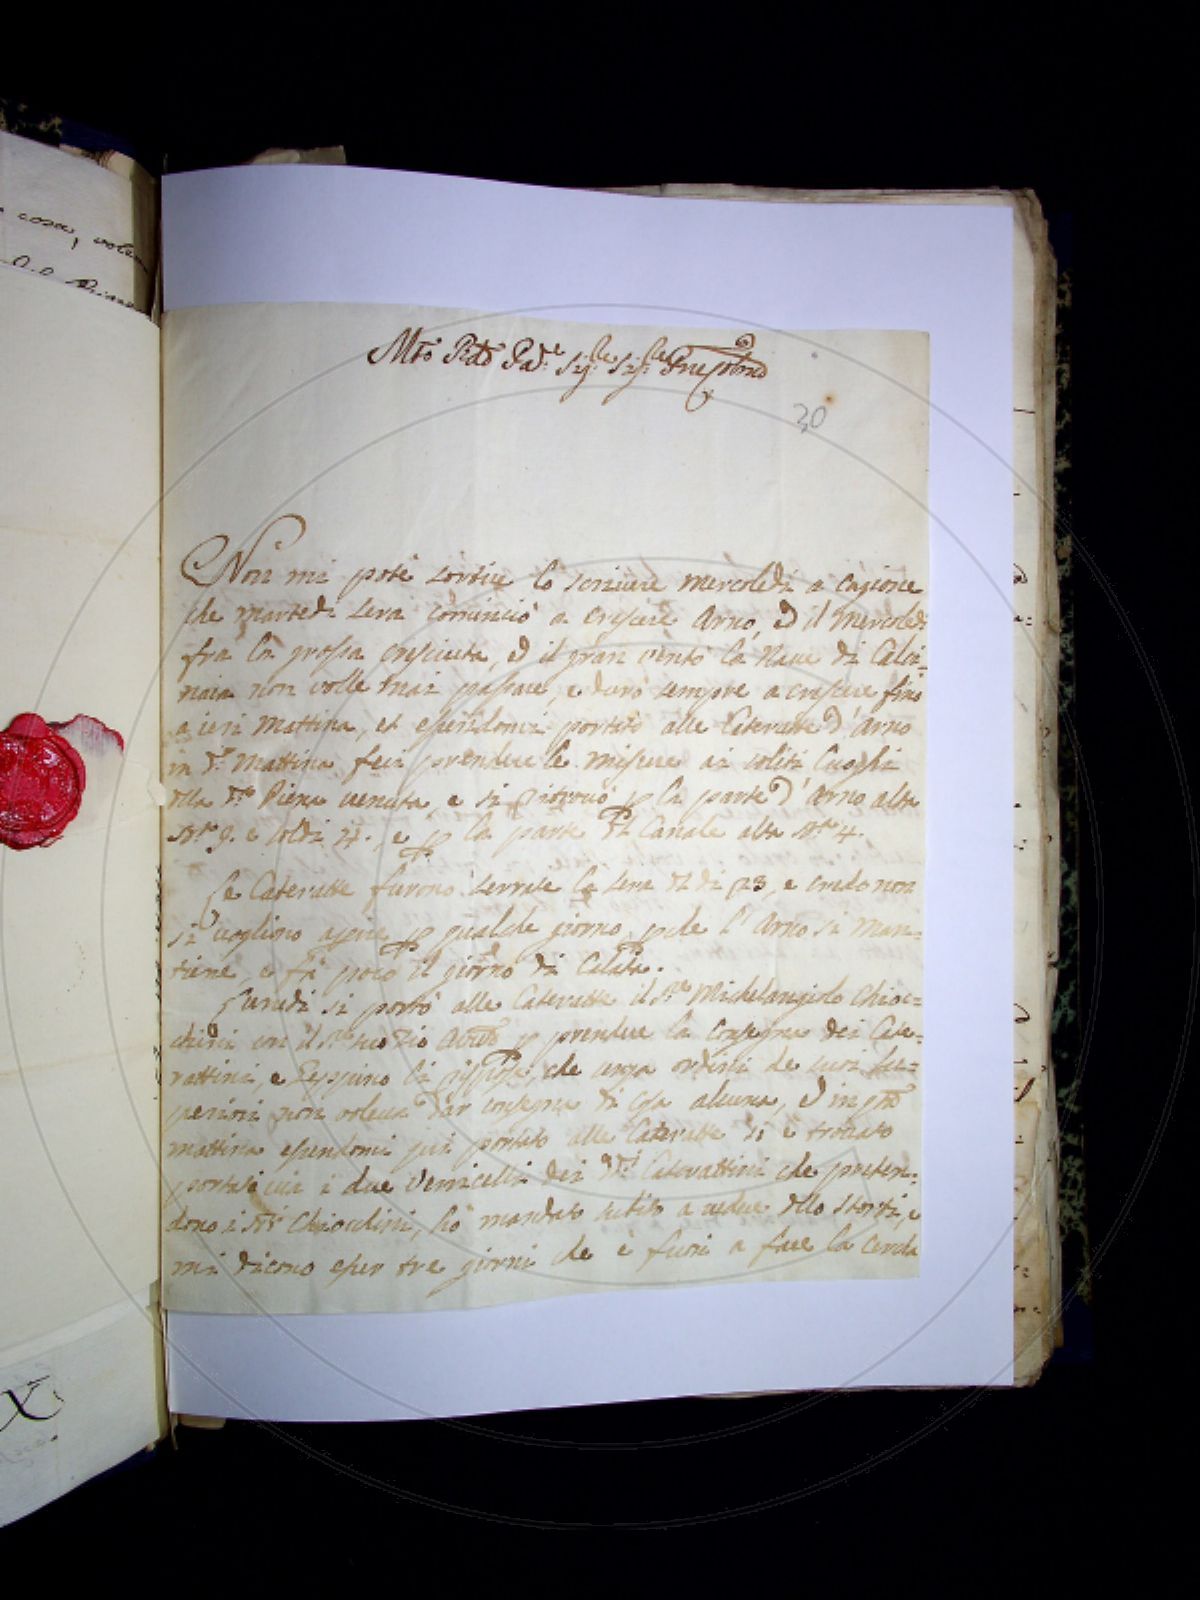 cosa, volen
Mto Rdo Pad.e Sig.re Sig.re Pne
30
Non mi potè sortire lo scrivere mercoledi a cagione
che martedi sera cominciò a crescere Arno, ed il Mercoledi
fra la grossa cresciuta, ed il gran vento la Nave di Calci=
naia non volle mai passare, e durò sempre a crescere fino
a ieri mattina, et essendomi portato alle Cateratte d'Arno
in d.a Mattina feci prendere le misure ai soliti Luoghi
della d.a Piena venuta, e si ritrovò p la parte d'Arno alta
B.a 9. e soldi 4., e p la parte del Canale alta B.a 4.
Le Cateratte furono serrate la sera del di 23, e credo non
si voglino aprire p qualche giorno, pche l'Arno si man=
tiene, e fà poco il giorno di Calata.
Lunedi si portò alle Cateratte il S.re Michelangiolo Chioc=
chini con il S.re suo Zio p prendere la Consegna dei Cate=
rattini, e Peppino li rispose, che senza ordini de suoi Su=
periori non voleva dar consegna di cosa alcuna, ed in qta
mattina essendomi qui portato alle Cateratte si è trovato
portati via i due Verricelli dei d.i Caterattini che preten=
dono i SS.ri Chiocchini, hò mandato subito a vedere dello Storti, e
mi dicono esser tre giorni che è fuori a fare la cerca
X